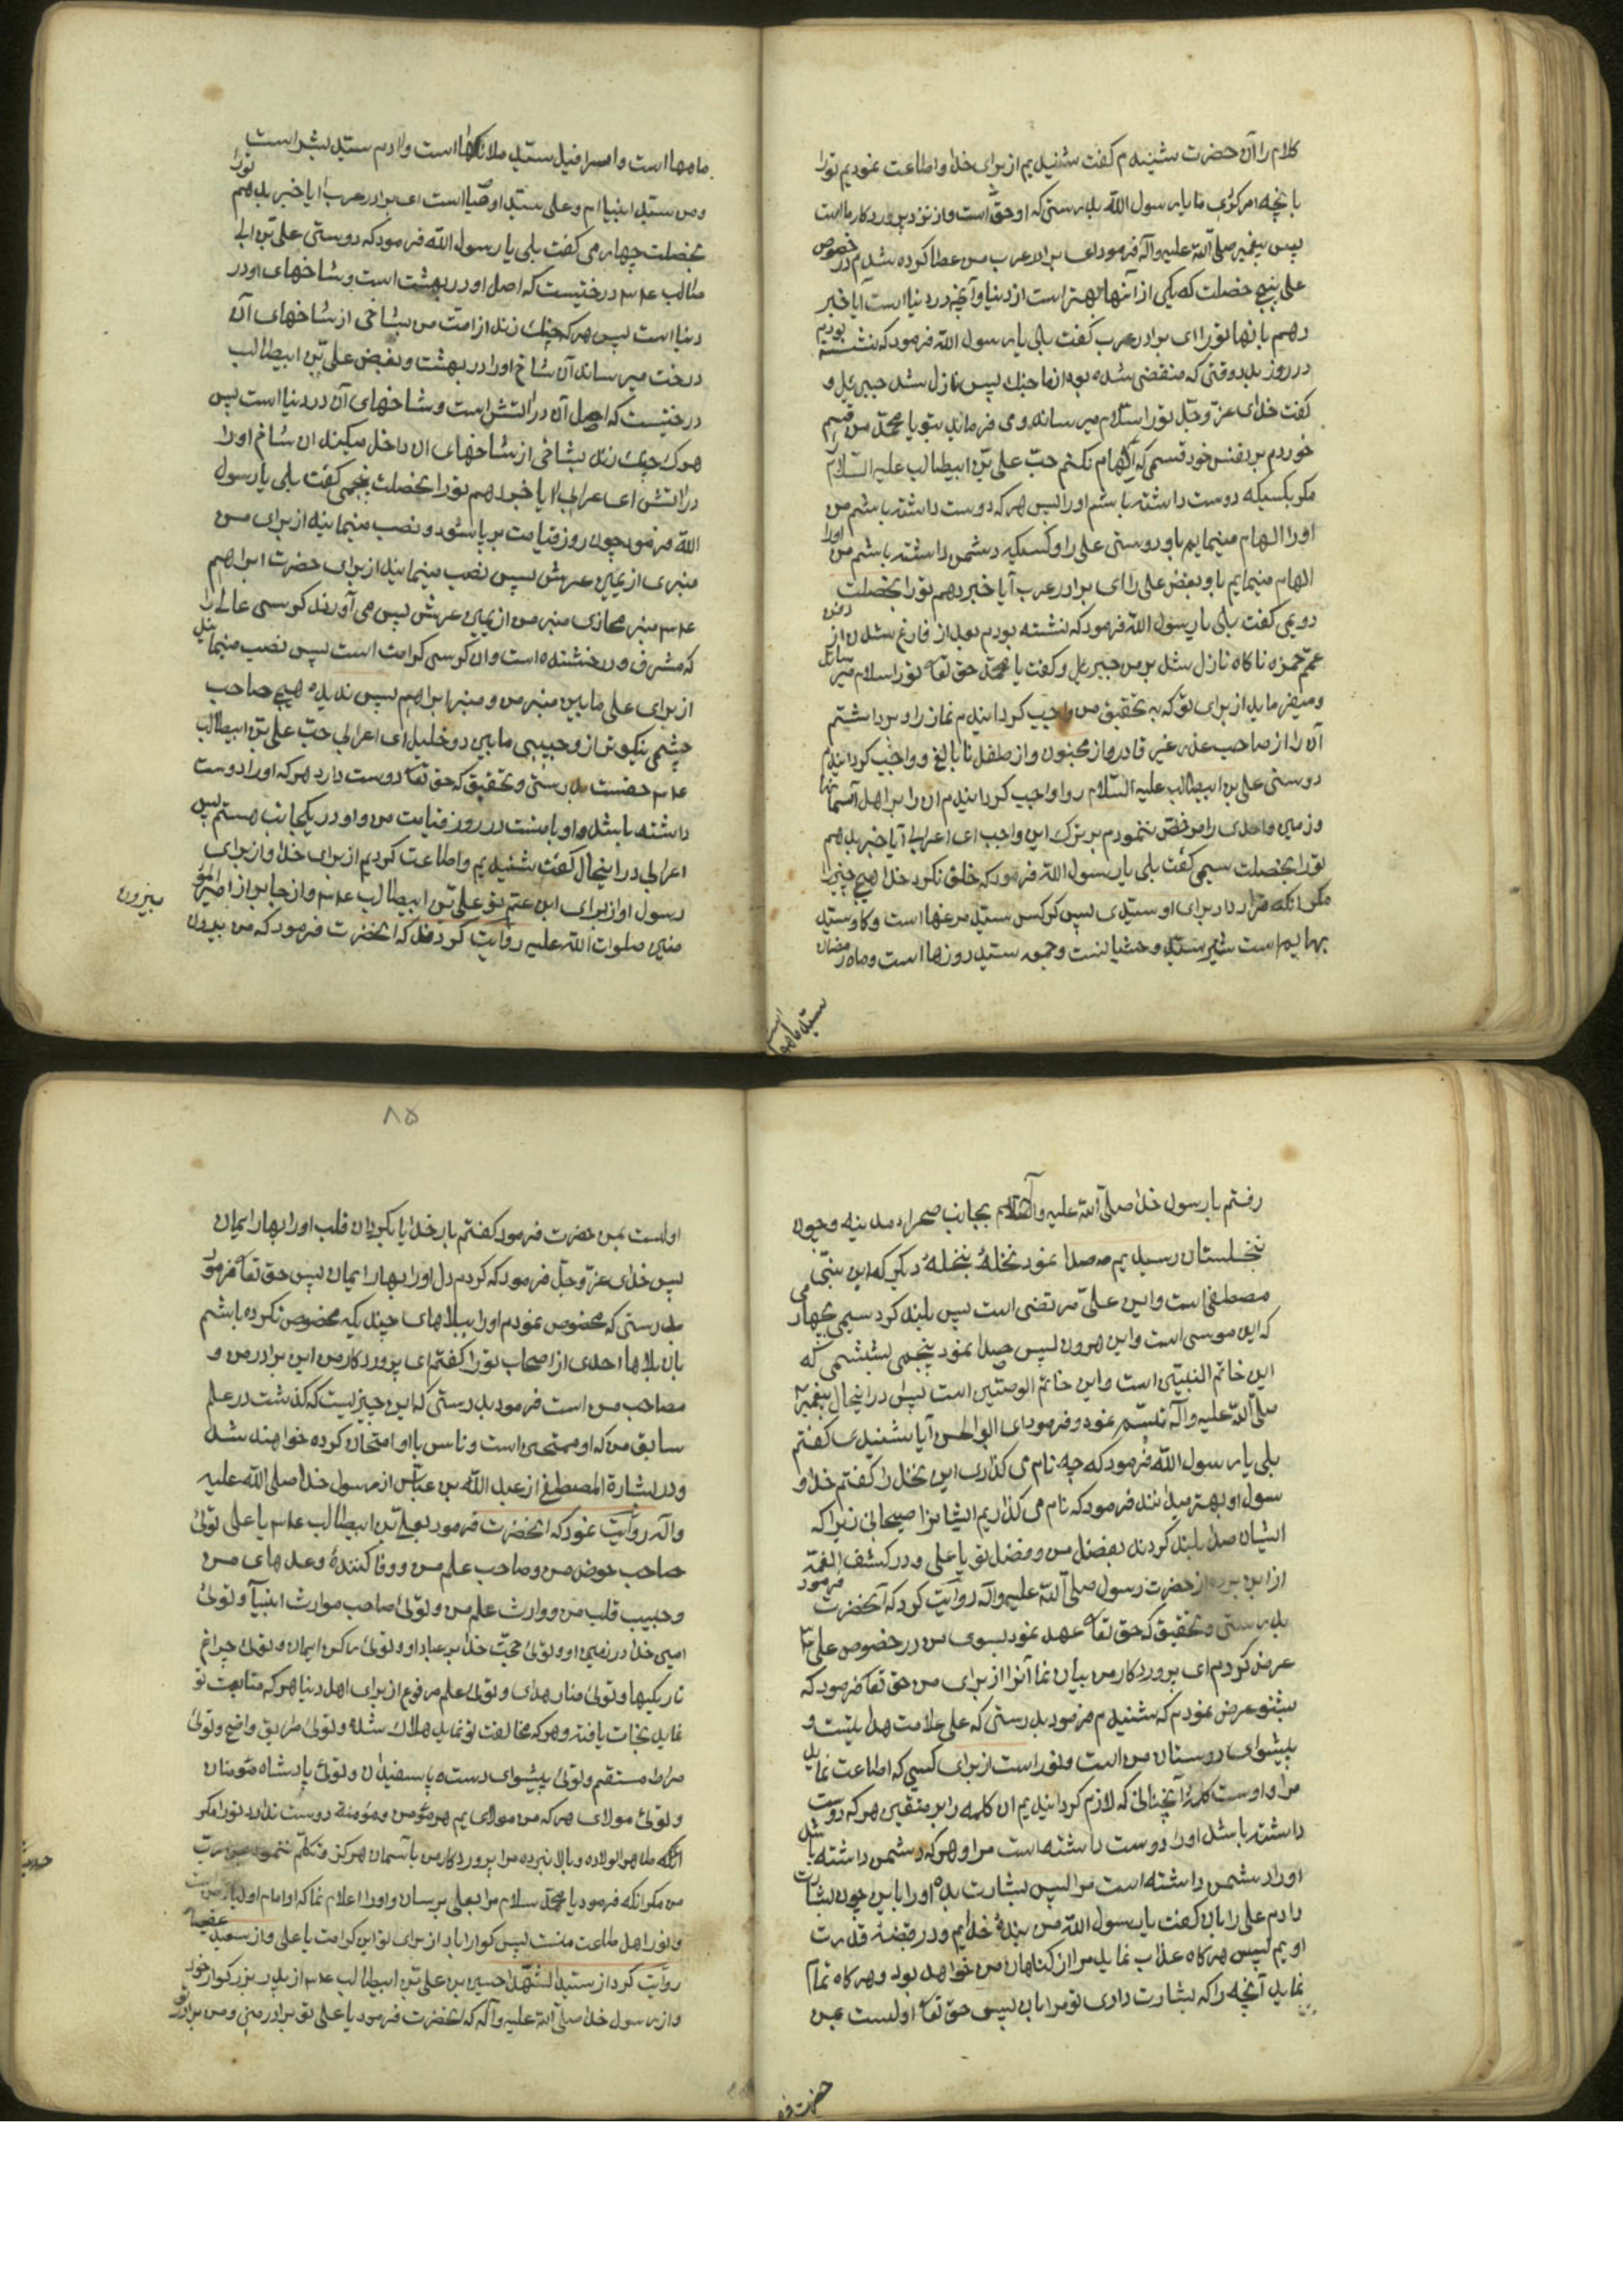 کلام را آن حضرت شنیدم گفت شنیدیم از برای خدا و اطاعت نمودیم تو را
بانچه امر کردی ما یا رسول الله بدرستی که او حق است و از نزد پروردگار ما است
پس پیغمبر صلی الله علیه وآله فرمود ای برادر عرب من عطا کرده شدم در خصوص
علی پنج خصلت که یکی از آنها بهتر است از دنیا و آنچه در دنیا است آیا خبر
دهم بانها تو را ای برادر عرب گفت بلی یا رسول الله فرمود که نشسته بودم
در روز بدر وقتی که منقضی شده بود از ما جنک پس نازل شد جبرئیل و
گفت خدای عز و جل تو را سلام میرساند و می فرماید بتو یا محمد من قسم
خوردم بر نفس خود قسمی که الهام نکنم حب علی بن ابیطالب علیه السلام
مکر بکسیکه دوست داشته باشم او را پس هر که دوست داشته باشم من
او را الهام مینمایم باو دوستی علی را و کسیکه دشمن داشته باشم من او را
الهام مینمایم باو بغض علی را ای برادر عرب آیا خبر دهم تو را بخصلت
دویمی گفت بلی یا رسول الله فرمود که نشسته بودم بعد از فارغ شدن از دفن
عمم حمزه ناکاه نازل شد بر من جبرئیل و گفت یا محمد حق تعا تو را سلام میرساند
و میفرماید از برای تو که به تحقیق من واجب کردانیدم نماز را و برداشتم
آن را از صاحب عذر غیر قادر و از مجنون و از طفل نابالغ و واجب کردانیدم
دوستی علی بن ابیطالب علیه السلام را واجب کردانیدم ان را بر اهل آسمانها
و زمین و احدی را مرخص ننمودم بر ترک این واجب ای اعرابی آیا خبر بدهم
تو را بخصلت سیمی گفت بلی یا رسول الله فرمود که خلق نکرد خدا هیچ چیز را
مکر انکه قرار داد برای او سیدی پس کرکس سید مرغها است و کاو سید
بهایم است شیر سید وحشیانست و جمعه سید روزها است و ماه رمضان
سید ماهها
ماهها است و اسرافیل سید ملائکها است و ادم سید بشر است
و من سید انبیا ام و علی سید اوصیا است ای برادر عرب ایا خبر بدهم تو را
بخصلت چهارمی گفت بلی یا رسول الله فرمود که دوستی علی بن ابی
طالب ع م درختیست که اصل او در بهشت است و شاخهای او در
دنیا است پس هر که چنک زند از امت من بشاخی از شاخهای آن
درخت میرساند آن شاخ او را در بهشت و بغض علی بن ابیطالب
درختیست که اصل آن در اتش است و شاخهای آن در دنیا است پس
هرک چنک زند بشاخی از شاخهای ان داخل میکند ان شاخ او را
در اتش ای اعرابی ایا خبر دهم تو را بخصلت پنجمی گفت بلی یا رسول
الله فرمود چون روز قیامت بر پا شود و نصب مینمایند از برای من
منبری از یمین عرش پس نصب مینمایند از برای حضرت ابراهیم
ع م منبر محاذی منبر من از یمین عرش پس می آورند کرسی عالی را
که مشرف و درخشنده است و ان کرسی کرامت است پس نصب مینمایند
از برای علی مابین منبر من و منبر ابراهیم پس ندیده هیچ صاحب
چشمی نیکوتر از وحبیبی مابین دو خلیل ای اعرابی حب علی بن ابیطالب
ع م حقست بدرستی و تحقیق که حق تعا دوست دارد هر که او را دوست
داشته باشد و او با منست در روز قیامت من و او در یکجانب هستم پس
اعرابی در اینحال گفت شنیدیم و اطاعت کردیم از برای خدا و از برای
رسول او از برای ابن عم تو علی بن ابیطالب ع م و از جابر از امیر المؤ
منین صلوات الله علیه روایت کرده اند که انحضرت فرمود که من بیرون
بیرون
رفتم با رسول خدا صلی الله علیه وآله بجانب صحراء مدینه و چون
نخلستان رسیدیم صدا نمود نخلهٔ بنخلهٔ دیکر که این نبی
مصطفی است و این علی مرتضی است پس بلند کرد سیمی بچهارمی
که این موسی است و این هرون پس صدا نمود پنجمی بششمی که
این خاتم النبیین است و این خاتم الوصیین است پس در اینحال پیغمبر
صلی الله علیه وآله تبسم نمود و فرمود ای ابو الحسن آیا شنیدی کفتم
بلی یا رسول الله فرمود که چه نام می کذاری این نخل را کفتم خدا و
سول او بهتر میدانند فرمود که نام می کذاریم ایشانرا صیحانی زیرا که
ایشان صدا بلند کردند بفضل من و فضل تو یا علی و در کشف الغمه
از ابی برده از حضرت رسول صلی الله علیه وآله روایت کرد که آنحضرت فرمود
بدرستی و تحقیق که حق تعا عهد نمود بسوی من در خصوص علی
عرض کردم ای پروردکار من بیان نما آنرا از برای من حق تعا فرمود که
بشنو عرض نمودم که شنیدم فرمود بدرستی که علی علامت هدایتست و
پیشوای دوستان من است و نور است از برای کسی که اطاعت نماید
مرا و اوست کلمهٔ آنچنانی که لازم کردانیدیم ان کلمه را بر متقین هر که دوست
داشته باشد او را دوست داشته است مرا و هر که دشمن داشته باشد
او را دشمن داشته است مرا پس بشارت بده او را باین چون بشارت
دادم علی را بان گفت یا رسول الله من بندهٔ خدایم و در قبضه قدرت
اویم پس هر کاه عذاب نماید مرا از کناهان من خواهد بود و هر کاه تمام
نماید آنچه را که بشارت دادی تو مرا بان پس حق تعا اولست بمن
حضرت فر
۸۵
اولست بمن حضرت فرمود کفتم بار خدایا بکردان قلب او را بهار ایمان
پس خدای عز و جل فرمود که کردم دل او را بهار ایمان پس حق تعا فرمود
بدرستی که مخصوص نمودم او را ببلاهای چند یکه مخصوص نکرده باشم
بان بلاها احدی از اصحاب تو را کفتم ای پروردکار من این برادر من و
مصاحب من است فرمود بدرستی که این چیزیست که کذشت در علم
سابق من که او ممتحن است و ناس با او امتحان کرده خواهند شد
و در بشارة المصطفی از عبد الله بن عباس از رسول خدا صلی الله علیه
وآله روایت نمود که انحضرت فرمود بعلی بن ابیطالب ع م یا علی توئی
صاحب حوض من و صاحب علم من و وفا کنندهٔ وعدهای من
و حبیب قلب من و وارث علم من و توئی صاحب موارث انبیآ و توئی
امین خدا در زمین او و توئی حجت خدا بر عباد او و توئی رکن ایمان و توئی چراغ
تاریکیها و توئی منار هدای و توئی علم مرفوع از برای اهل دنیا هر که متابعت تو
نماید نجات یافته و هر که مخالفت تو نماید هلاک شده و توئی طریق واضح و توئی
صراط مستقیم و توئی پیشوای دست و پا سفیدان و توئی پادشاه مؤمنان
و توئی مولای هر که من مولای یم هر مؤمن و مؤمنة دوست ندارد تو را مکر
انکه طاهر الولاده و بالا نبرده مرا پروردکار من بآسمان هرکز و تکلم ننموده
من مکر انکه فرمود یا محمد سلام مرا بعلی برسان و او را اعلام نما که او امام اولیاء من است
و نور اهل طاعت منست پس کوارا باد از برای تو این کرامت یا علی و از سعید
روایت کرد از سید الشهدا حسین بن علی بن ابیطالب ع م از پدر بزرکوار خود
و از رسول خدا صلی الله علیه وآله که انحضرت فرمود یا علی تو برادر منی و من برادر تو